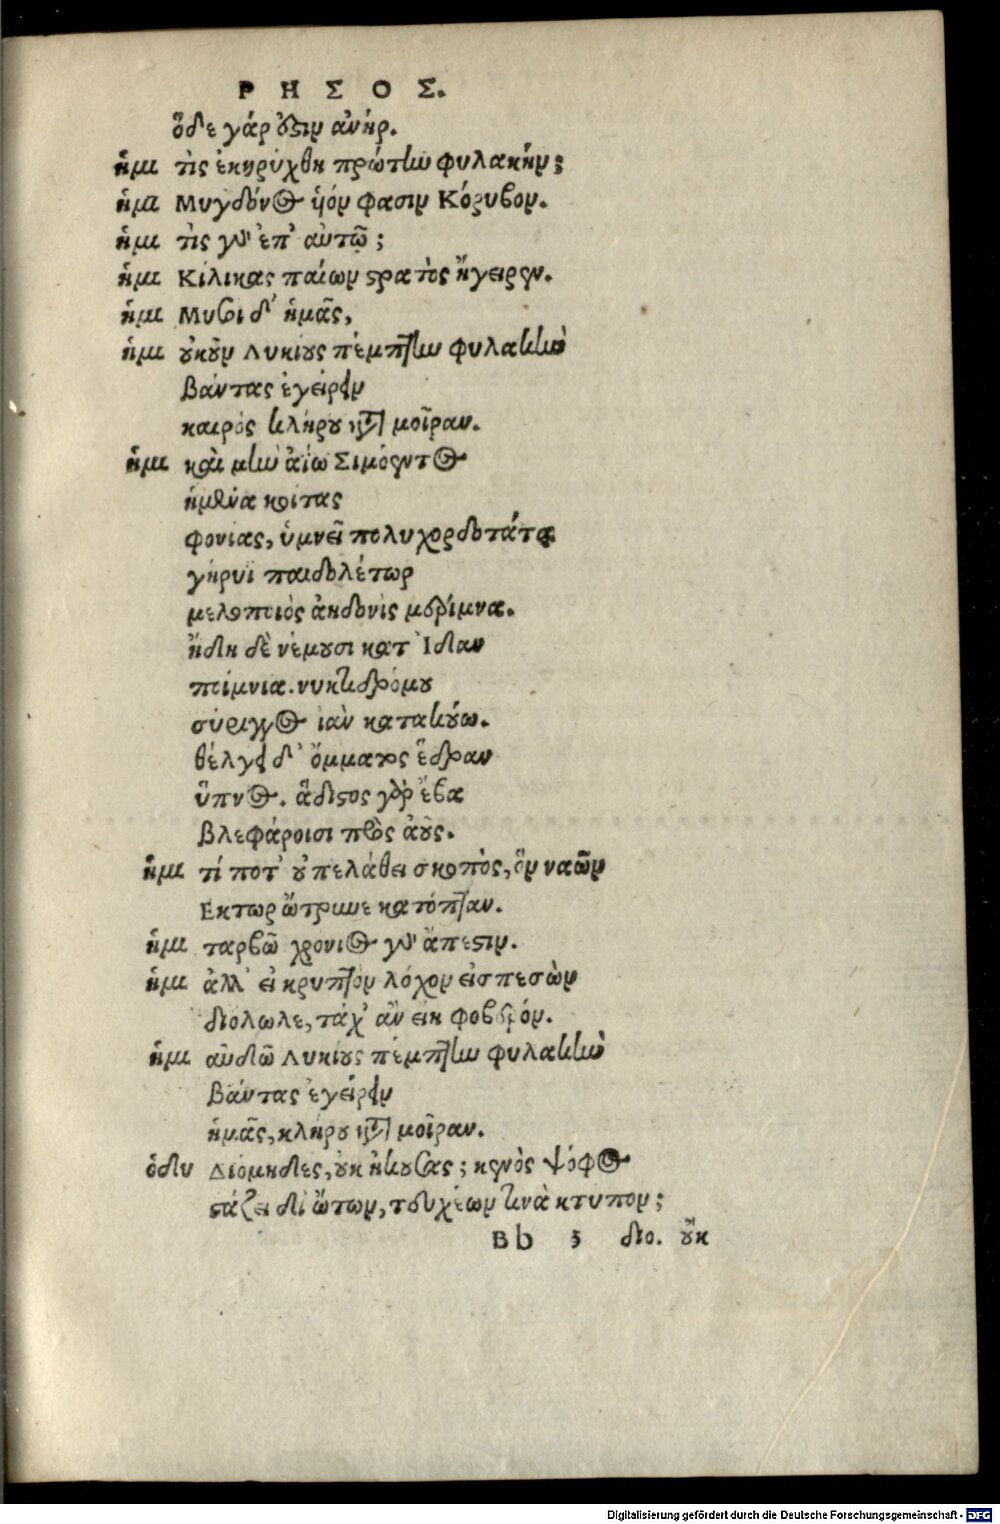 ΡΗΣΟΣ.
ὅδε γάρ ὅςιν ἀνήρ.
ἡμι τὶς ἐκηρύχθη πρώτην φυλακήν;
ἡμι Μυγδόνος ὑόν φασιν Κόρυβον.
ἡμι τὶς γὰρ ἐπ' αὐτῷ;
ἡμι Κίλικας παίων ςρατὸς ἤγειρεν.
ἡμι Μυσοὶ δ' ἡμᾶς,
ἡμι οὐκοῦν Λυκίους πέμπτην φυλακὴν
βάντας ἐγείρειν
καιρὸς κλήρου κατὰ μοῖραν.
ἡμι καὶ μὴν ἀΐω Σιμόεντος
ἡμένα κοίτας
φονίας, ὑμνεῖ πολυχορδοτάτα
γήρυϊ παιδολέτωρ
μελοποιὸς ἀηδονὶς μέριμνα.
ἤδη δὲ νέμουσι κατ' Ἴδαν
ποίμνια. νυκτιδρόμου
σύριγγος ἰαν κατακούω.
θέλγει δ' ὄμματος ἕδραν
ὕπνος. ἅδιςος γὰρ ἔβα
βλεφάροισι πρὸς ἀοῦς.
ἡμι τί ποτ' οὐ πελάθει σκοπὸς, ὃν ναῶν
Εκτωρ ὤτρυνε κατόπταν.
ἡμι ταρβῶ χρόνιος γὰρ ἄπεςιν.
ἡμι ἀλλ' εἰ κρυπτὸν λόχον εἰσπεσὼν
διόλωλε, τάχ' ἂν εἴη φοβερόν.
ἡμι αὐδῶ Λυκίους πέμπτην φυλακὴν
βάντας ἐγείρειν
ἡμᾶς, κλήρου κατὰ μοῖραν.
ὀδυ Διόμηδες, οὐκ ἤκουσας; κενὸς ψόφος
ςάζει δι' ὤτων, τευχέων τινὰ κτύπον;
Bb 3 διο. οὔκ
Digitalisierung gefördert durch die Deutsche Forschungsgemeinschaft - DFG